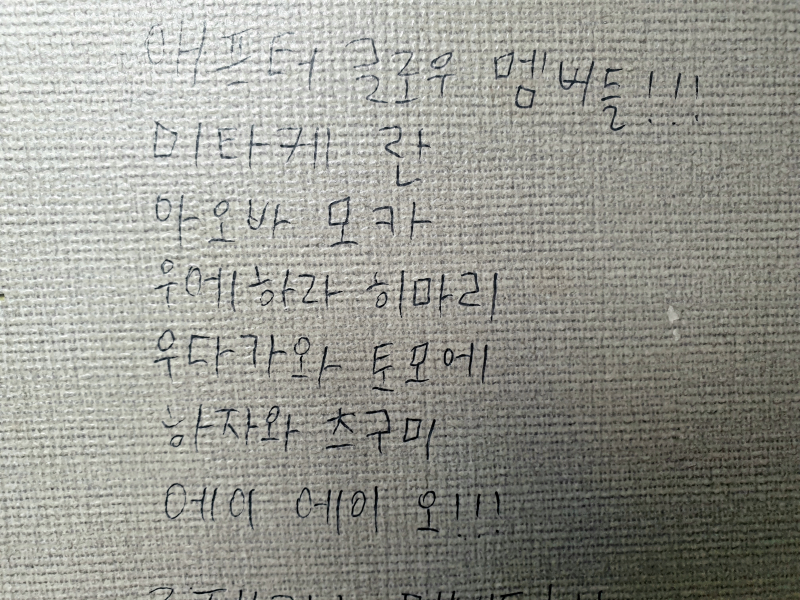 애프터 글로우 멤버들!!!
미타케 란
아오바 모카
우에하라 히마리
우다가와 토모에
하자와 츠구미
에이 에이 오!!!